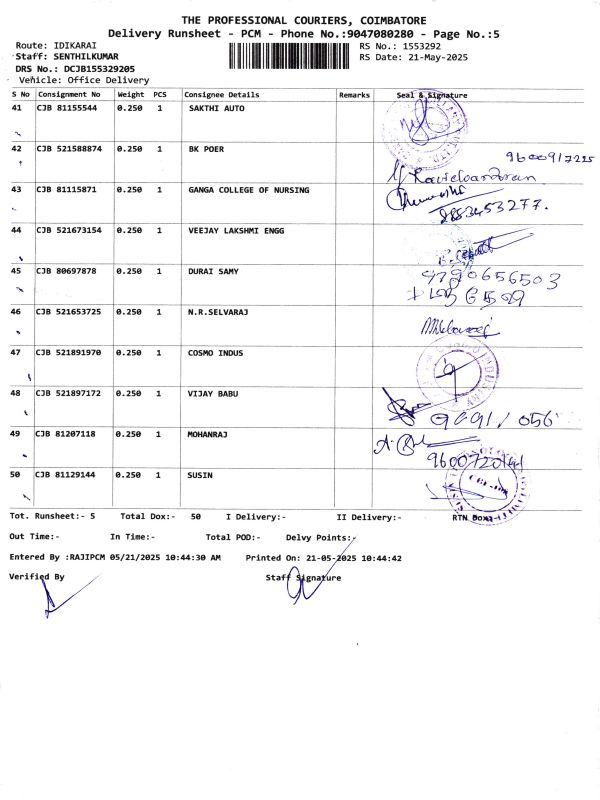 THE PROFESSIONAL COURIERS, COIMBATORE
Delivery Runsheet - PCM - Phone No.:9047080280 - Page No.:5
Route: IDIKARAI RS No.: 1553292
Staff: SENTHILKUMAR RS Date: 21-May-2025
DRS No.: DCJB155329205
Vehicle: Office Delivery
S No Consignment No Weight PCS Consignee Details Remarks Seal & Signature
41 CJB 81155544 0.250 1 SAKTHI AUTO
42 CJB 521588874 0.250 1 BK POER 9600917225
43 CJB 81115871 0.250 1 GANGA COLLEGE OF NURSING
44 CJB 521673154 0.250 1 VEEJAY LAKSHMI ENGG
45 CJB 80697878 0.250 1 DURAI SAMY 9790656503
46 CJB 521653725 0.250 1 N.R.SELVARAJ
47 CJB 521891970 0.250 1 COSMO INDUS
48 CJB 521897172 0.250 1 VIJAY BABU
49 CJB 81207118 0.250 1 MOHANRAJ
50 CJB 81129144 0.250 1 SUSIN
Tot. Runsheet:- 5 Total Dox:- 50 I Delivery:- II Delivery:- RTN Dox:-
Out Time:- In Time:- Total POD:- Delvy Points:-
Entered By :RAJIPCM 05/21/2025 10:44:30 AM Printed On: 21-05-2025 10:44:42
Verified By Staff Signature